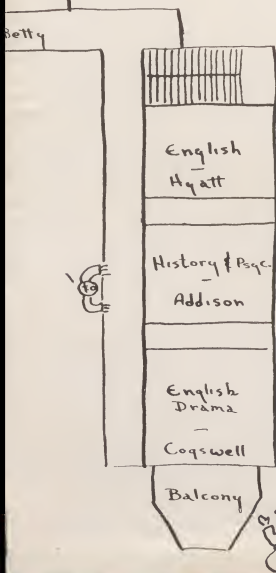 Betty
English
Hyatt
History & Psyc.
Addison
English
Drama
Cogswell
Balcony